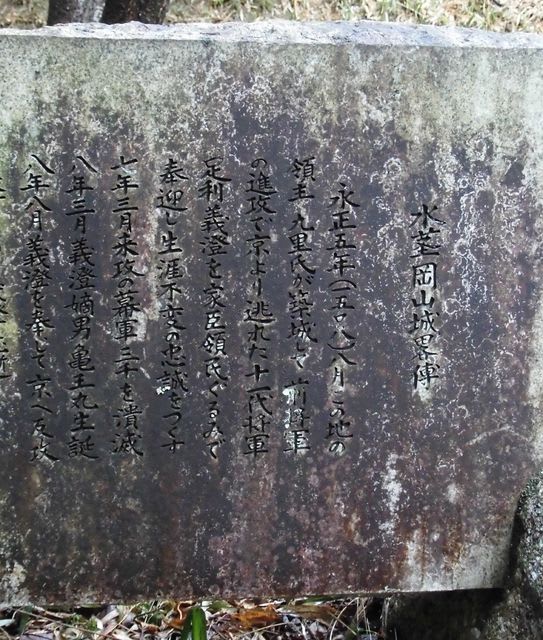 水茎岡山城畧傳
永正五年(一五〇八)八月 この地の
領主 九里氏が築城して 前将軍
の進攻で京より逃れた十一代将軍
足利義澄を家臣領民ぐるみで
奉迎し生涯不変の忠誠をつくす
七年三月来攻の幕軍三千を潰滅
八年三月義澄嫡男亀王丸生誕
八年八月義澄を奉じて京へ反攻